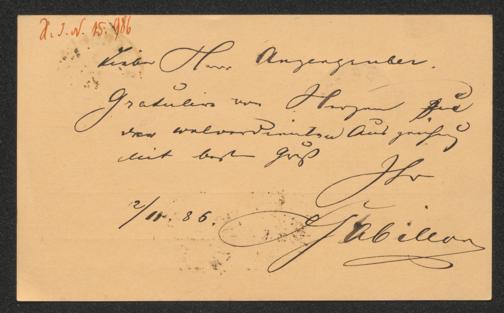 H. I. N. 15.986
Lieber Herr Anzengruber.
Gratuliere von Herzen zu
der wolverdienten Auszeichnung
Mit besten Gruß
Ihr
2/11. 86. Gabillon